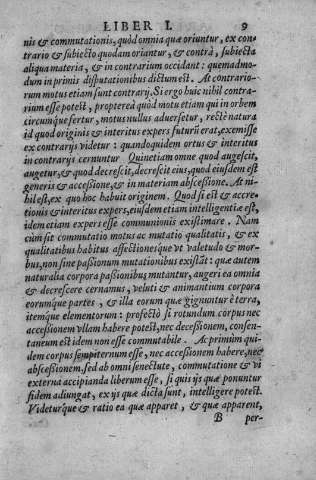 LIBER I. 9
nis & commutationis, quòd omnia quæ oriuntur, ex con-
trario & subiecto quodam oriantur, & contrà, subiecta
aliqua materia, & in contrarium occidant: quemadmo-
dum in primis disputationibus dictum est. At contrario-
rum motus etiam sunt contrarij. Si ergo huic nihil contra-
rium esse potest, propterea quòd motu etiam qui in orbem
circumque fertur, motus nullus aduersetur, rectè natura
id quod originis & interitus expers futurū erat, exemisse
ex contrarijs videtur: quandoquidem ortus & interitus
in contrarijs cernuntur Quinetiam omne quod augescit,
augetur, & quod decrescit, decrescit eius, quod eiusdem est
generis & accessione, & in materiam abscessione. At ni-
hil est, ex quo hoc habuit originem. Quod si est & accre-
tionis & interitus expers, eiusdem etiam intelligentiæ est,
idem etiam expers esse communionis existimare. Nam
cùm sit commutatio motus ac mutatio qualitatis, & ex
qualitatibus habitus affectionesque vt valetudo & mor-
bus, non sine passionum mutationibus existāt: quæ autem
naturalia corpora passionibus mutantur, augeri ea omnia
& decrescere cernamus, veluti & animantium corpora
eorumque partes, & illa eorum quæ gignuntur è terra,
itemque elementorum: profectò si rotundum corpus nec
accessionem vllam habere potest, nec decessionem, consen-
taneum est idem non esse commutabile. Ac primùm qui-
dem corpus sempiternum esse, nec accessionem habere, nec
abscessionem. sed ab omni senectute, commutatione & vi
externa accipianda liberum esse, si quis ijs quæ ponuntur
fidem adiungat, ex ijs quæ dicta sunt, intelligere potest.
Videturque & ratio ea quæ apparet, & quæ apparent,
B per-